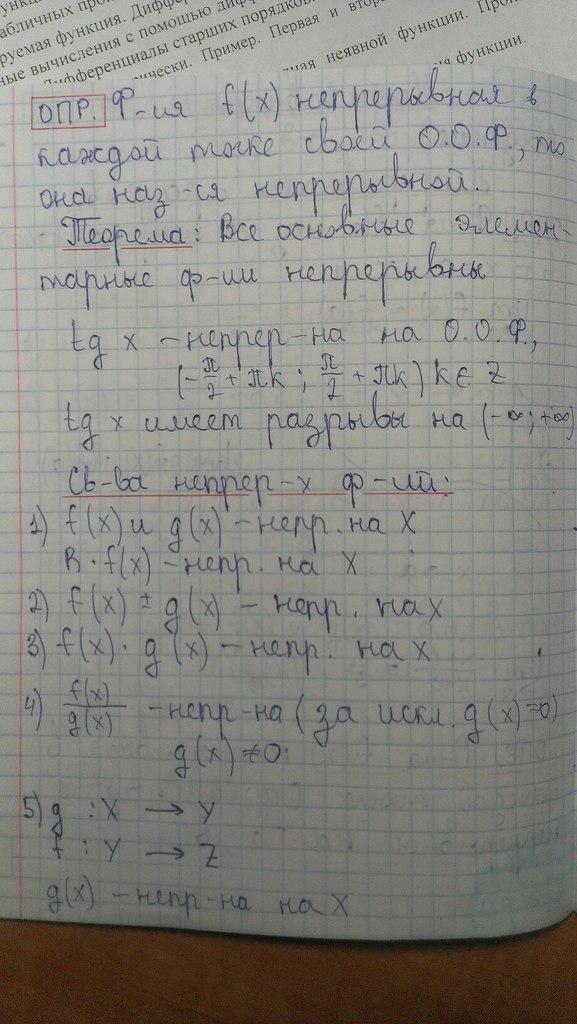 абличных про
руемая функция. Диффе
ные вычисления с помощью диф
ифференциалы старших порядков
ически. Пример. Первая и втор
ная неявной функции. Прои
я функции.
ОПР. Ф-ия f(x) непрерывная в
каждой точке своей О.О.Ф., то
она наз-ся непрерывной.
Теорема: Все основные элемен-
тарные ф-ии непрерывны
tg x - непрер-на на О.О.Ф.,
(-π/2 + πк ; π/2 + πк) к ∈ Z
tg x имеет разрывы на (-∞; +∞)
Св-ва непрер-х ф-ий:
1) f(x) и g(x) - непр. на X
R · f(x) - непр. на X
2) f(x) ± g(x) - непр. на x
3) f(x) · g(x) - непр. на X
4) f(x)/g(x) - непр-на (за искл. g(x)=0)
g(x) ≠ 0.
5) g : X → Y
f : Y → Z
g(x) - непр-на на X